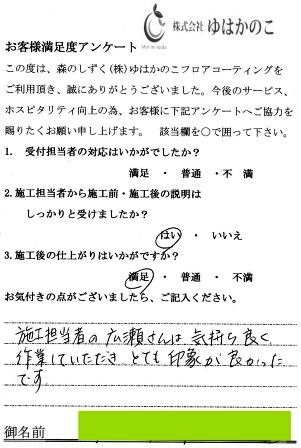 株式会社 ゆはかのこ
お客様満足度アンケート
この度は、森のしずく(株)ゆはかのこフロアコーティングを
ご利用頂き、誠にありがとうございました。今後のサービス、
ホスピタリティ向上の為、お客様に下記アンケートへご協力を
賜りたくお願い申し上げます。 該当欄を○で囲って下さい。
1. 受付担当者の対応はいかがでしたか?
満足 ・ 普通 ・ 不 満
2.施工担当者から施工前・施工後の説明は
しっかりと受けましたか?
はい ・ いいえ
3.施工後の仕上がりはいかがですか?
満足 ・ 普通 ・ 不満
お気付きの点がございましたら、ご記入ください。
施工担当者の広瀬さんは気持ち良く
作業していただき とても印象が良かった
です。
御名前